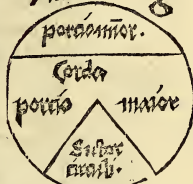 portio minor.
Corda
portio maior
Sector
circuli.